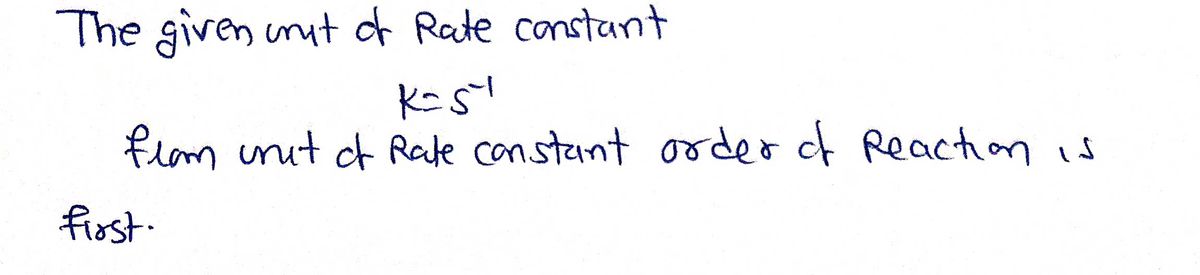 The given unit of Rate constant
K=S⁻¹
from unit of Rate constant order of Reaction is
first.